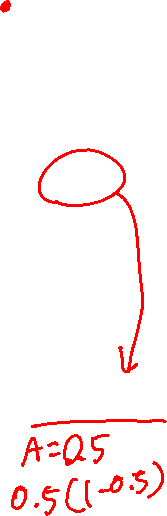 A=0.5
0.5(1-0.5)